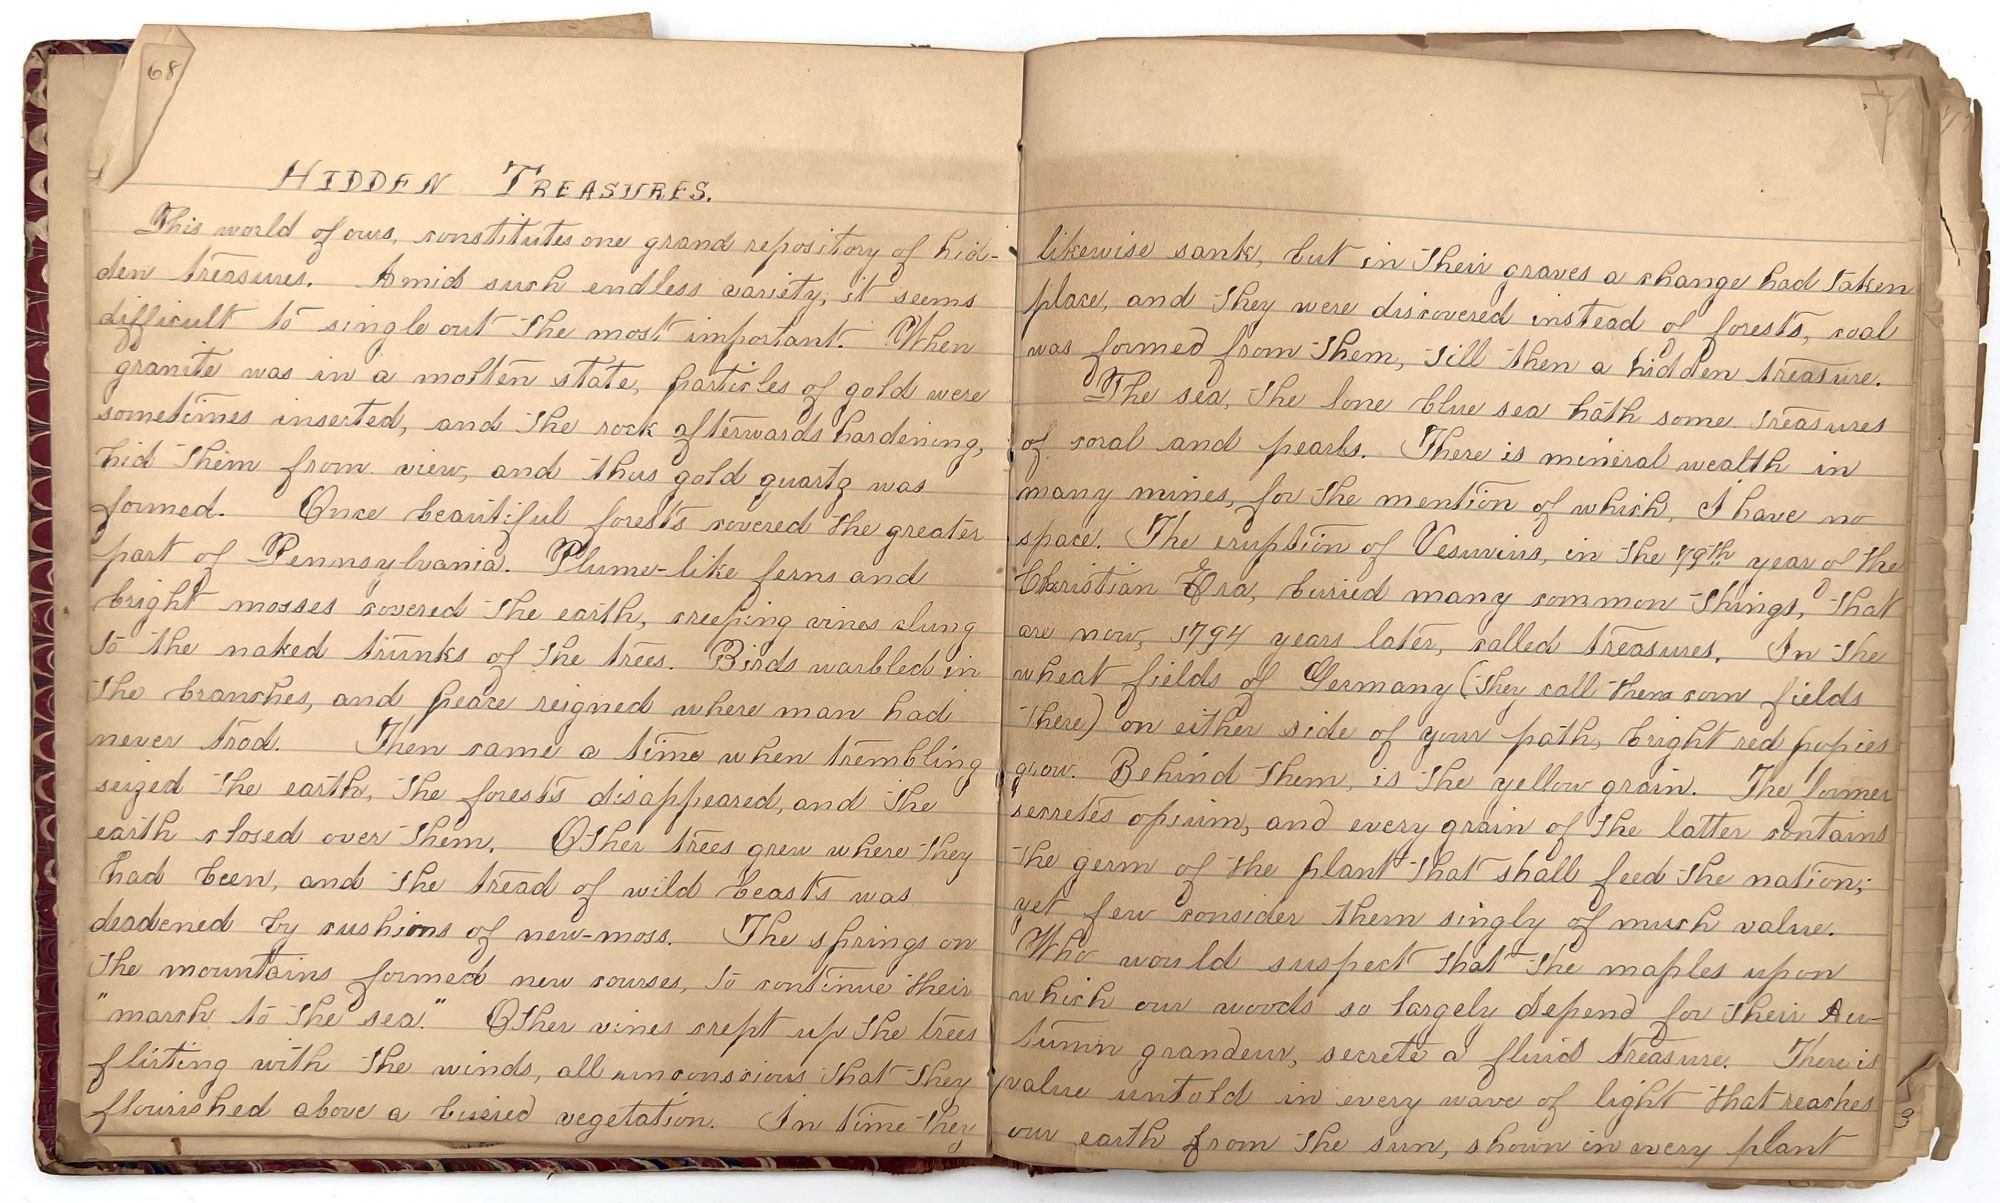 68
HIDDEN TREASURES.
This world of ours, constitutes one grand repository of hid-
den treasures. Amid such endless variety, it seems
difficult to single out the most important. When
granite was in a molten state, particles of gold were
sometimes inserted, and the rock afterwards hardening,
hid them from view, and thus gold quartz was
formed. Once beautiful forests covered the greater
part of Pennsylvania. Plume-like ferns and
bright mosses covered the earth, creeping vines clung
to the naked trunks of the trees. Birds warbled in
the branches, and peace reigned where man had
never trod. Then came a time when trembling
seized the earth, the forests disappeared, and the
earth closed over them. Other trees grew where they
had been, and the tread of wild beasts was
deadened by cushions of new-moss. The springs on
the mountains formed new courses, to continue their
"march to the sea." Other vines crept up the trees
flirting with the winds, all unconscious that they
flourished above a buried vegetation. In time they
likewise sank, but in their graves a change had taken
place, and they were discovered instead of forests, coal
was formed from them, till then a hidden treasure.
The sea, the lone blue sea hath some treasures
of coral and pearls. There is mineral wealth in
many mines, for the mention of which, I have no
space. The eruption of Vesuvius, in the 79th year of the
Christian Era, buried many common things, that
are now, 1794 years later, called treasures. In the
wheat fields of Germany (they call them corn fields
there) on either side of your path, bright red popies
grow. Behind them, is the yellow grain. The former
secretes opium, and every grain of the latter contains
the germ of the plant that shall feed the nation;
yet few consider them singly of much value.
Who would suspect that the maples upon
which our woods so largely depend for their Au-
tumn grandeur, secrete a fluid treasure. There is
value untold in every wave of light that reaches
our earth from the sun, shown in every plant
3